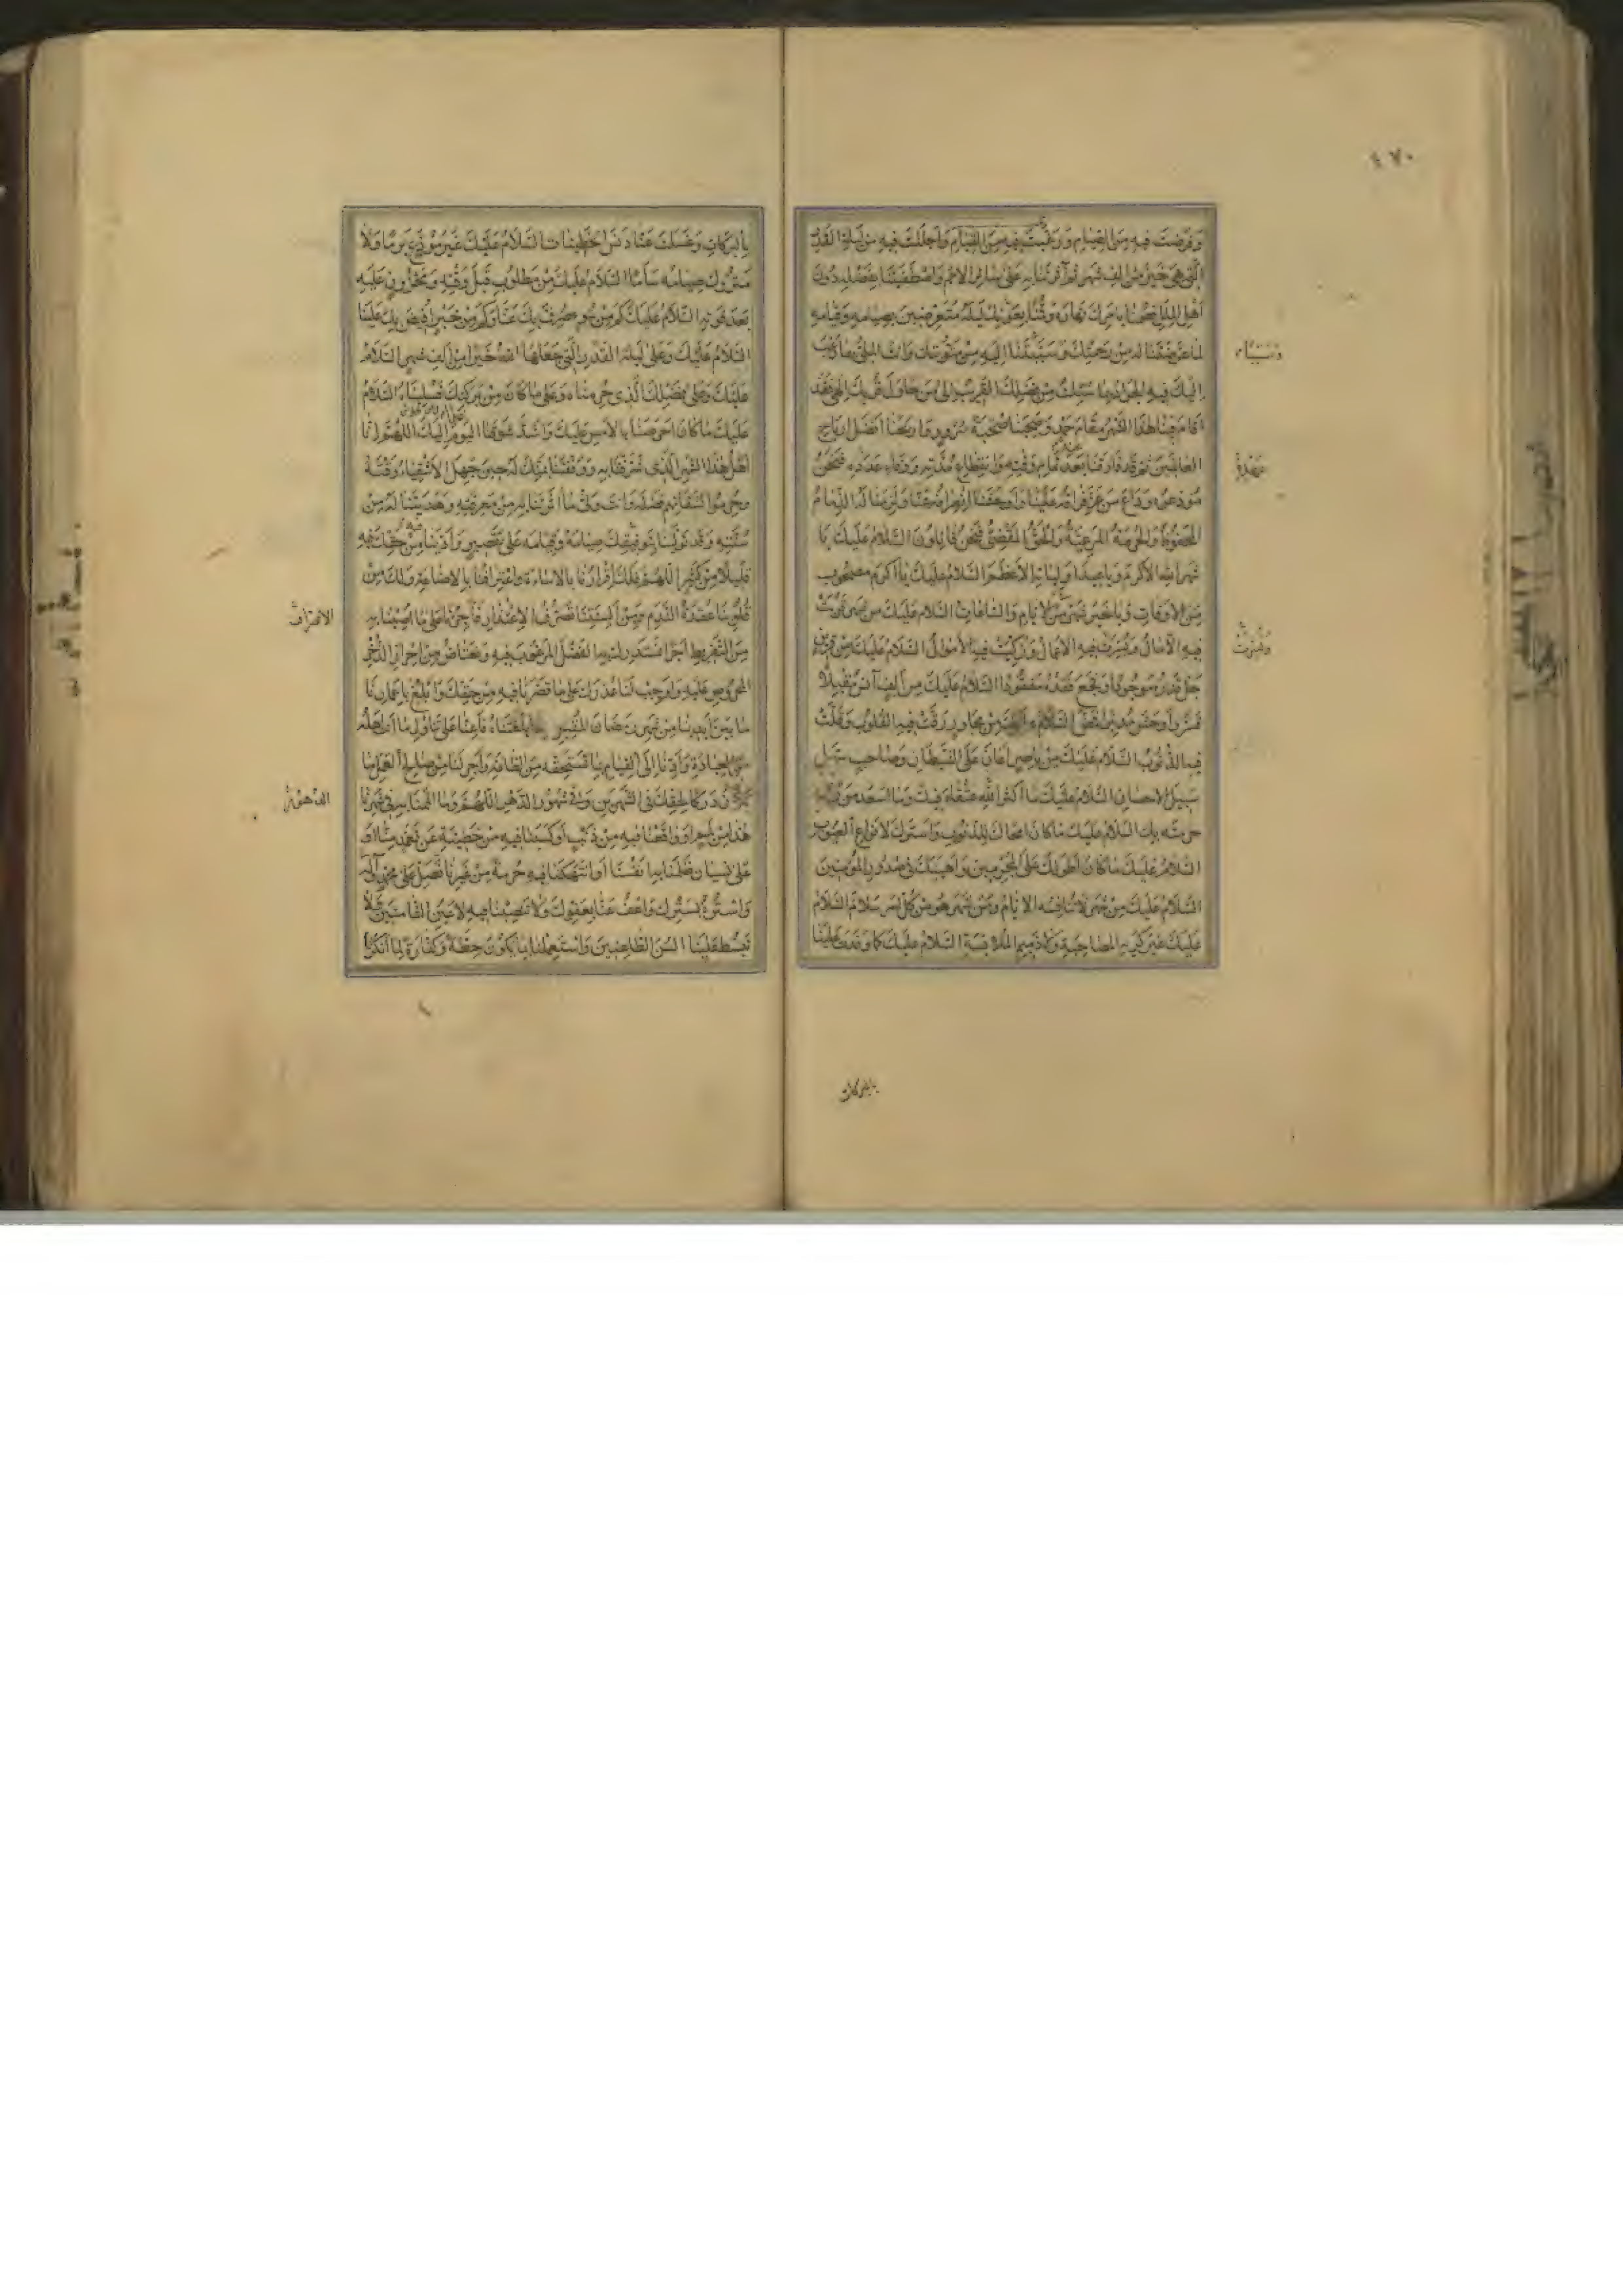 ٤٧٠
وَفَرَضْتَ فِيهِ مِنَ الصِّيَامِ وَرَغَّبْتَ فِيهِ مِنَ الْقِيَامِ وَأَجْلَلْتَ فِيهِ مِنْ لَيْلَةِ الْقَدْرِ
الَّتِي هِيَ خَيْرٌ مِنْ أَلْفِ شَهْرٍ ثُمَّ آثَرْتَنَا بِهِ عَلَى سَائِرِ الْأُمَمِ وَاصْطَفَيْتَنَا بِفَضْلِهِ دُونَ
أَهْلِ الْمِلَلِ فَصُمْنَا بِأَمْرِكَ نَهَارَهُ وَقُمْنَا بِعَوْنِكَ لَيْلَهُ مُتَعَرِّضِينَ بِصِيَامِهِ وَقِيَامِهِ
لِمَا عَرَّضْتَنَا لَهُ مِنْ رَحْمَتِكَ وَسَبَّبْتَنَا إِلَيْهِ مِنْ مَثُوبَتِكَ وَأَنْتَ الْمَلِيُّ بِمَا رُغِبَ
إِلَيْكَ فِيهِ الْجَوَادُ بِمَا سُئِلْتَ مِنْ فَضْلِكَ الْقَرِيبُ إِلَى مَنْ حَاوَلَ قُرْبَكَ اللهم وَقَدْ
أَقَامَ فِينَا هَذَا الشَّهْرُ مَقَامَ حَمْدٍ وَصَحِبَنَا صُحْبَةَ سُرُورٍ وَأَرْبَحَنَا أَفْضَلَ أَرْبَاحِ
الْعَالَمِينَ ثُمَّ قَدْ فَارَقَنَا بَعْدَ تَمَامِ وَقْتِهِ وَانْقِطَاعِ مُدَّتِهِ وَوَفَاءِ عَدَدِهِ فَنَحْنُ
مُوَدِّعُوهُ وَدَاعَ مَنْ عَزَّ فِرَاقُهُ عَلَيْنَا وَأَوْحَشَنَا انْصِرَافُهُ عَنَّا وَلَزِمَنَا لَهُ الذِّمَامُ
الْمَحْفُوظُ وَالْحُرْمَةُ الْمَرْعِيَّةُ وَالْحَقُّ الْمَقْضِيُّ فَنَحْنُ قَائِلُونَ السَّلَامُ عَلَيْكَ يَا
شَهْرَ اللهِ الْأَكْرَمَ وَيَا عِيدَ أَوْلِيَائِهِ الْأَعْظَمَ السَّلَامُ عَلَيْكَ يَا أَكْرَمَ مَصْحُوبٍ
مِنَ الْأَوْقَاتِ وَيَا خَيْرَ شَهْرٍ مِنَ الْأَيَّامِ وَالسَّاعَاتِ السَّلَامُ عَلَيْكَ مِنْ شَهْرٍ قَرُبَتْ
فِيهِ الْآمَالُ وَنُشِرَتْ فِيهِ الْأَعْمَالُ وَزُكِّيَتْ فِيهِ الْأَمْوَالُ السَّلَامُ عَلَيْكَ مِنْ قَرِينٍ
جَلَّ قَدْرُهُ مَوْجُودًا وَفَجَعَ فَقْدُهُ مَفْقُودًا السَّلَامُ عَلَيْكَ مِنْ أَلِيفٍ آنَسَ مُقْبِلًا
فَسَرَّ وَأَوْحَشَ مُدْبِرًا فَمَضَّ السَّلَامُ مِنْ مُجَاوِرٍ رَقَّتْ فِيهِ الْقُلُوبُ وَقَلَّتْ
فِيهِ الذُّنُوبُ السَّلَامُ عَلَيْكَ مِنْ نَاصِرٍ أَعَانَ عَلَى الشَّيْطَانِ وَصَاحِبٍ سَهَّلَ
سَبِيلَ الْإِحْسَانِ السَّلَامُ عَلَيْكَ مَا أَكْثَرَ عُتَقَاءَ اللهِ فِيكَ وَمَا أَسْعَدَ مَنْ رَعَى
حُرْمَتَهُ بِكَ السَّلَامُ عَلَيْكَ مَا كَانَ أَمْحَاكَ لِلذُّنُوبِ وَأَسْتَرَكَ لِأَنْوَاعِ الْعُيُوبِ
السَّلَامُ عَلَيْكَ مَا كَانَ أَطْوَلَكَ عَلَى الْمُجْرِمِينَ وَأَهْيَبَكَ فِي صُدُورِ الْمُؤْمِنِينَ
السَّلَامُ عَلَيْكَ مِنْ شَهْرٍ لَا تُنَافِسُهُ الْأَيَّامُ وَمِنْ شَهْرٍ هُوَ مِنْ كُلِّ أَمْرٍ سَلَامٌ السَّلَامُ
عَلَيْكَ غَيْرَ كَرِيهِ الْمُصَاحَبَةِ وَلَا ذَمِيمِ الْمُلَابَسَةِ السَّلَامُ عَلَيْكَ كَمَا وَفَدْتَ عَلَيْنَا
بالبركات
بِالْبَرَكَاتِ وَغَسَلْتَ عَنَّا دَنَسَ الْخَطِيئَاتِ السَّلَامُ عَلَيْكَ غَيْرَ مُوَدَّعٍ بَرَمًا وَلَا
مَتْرُوكٍ صِيَامُهُ سَأَمًا السَّلَامُ عَلَيْكَ مِنْ مَطْلُوبٍ قَبْلَ وَقْتِهِ وَمَحْزُونٍ عَلَيْهِ
بَعْدَ فَوْتِهِ السَّلَامُ عَلَيْكَ كَمْ مِنْ سُوءٍ صُرِفَ بِكَ عَنَّا وَكَمْ مِنْ خَيْرٍ أُفِيضَ بِكَ عَلَيْنَا
السَّلَامُ عَلَيْكَ وَعَلَى لَيْلَةِ الْقَدْرِ الَّتِي جَعَلَهَا اللهُ خَيْرًا مِنْ أَلْفِ شَهْرٍ السَّلَامُ
عَلَيْكَ وَعَلَى فَضْلِكَ الَّذِي حُرِمْنَاهُ وَعَلَى مَا كَانَ مِنْ بَرَكَتِكَ فَسُلِبْنَاهُ السَّلَامُ
عَلَيْكَ مَا كَانَ أَحْرَصَنَا بِالْأَمْسِ عَلَيْكَ وَأَشَدَّ شَوْقَنَا الْيَوْمَ إِلَيْكَ اللَّهُمَّ إِنَّا
أَهْلُ هَذَا الشَّهْرِ الَّذِي شَرَّفْتَنَا بِهِ وَوَفَّقْتَنَا بِمَنِّكَ لَهُ حِينَ جَهِلَ الْأَشْقِيَاءُ وَقْتَهُ
وَحُرِمُوا لِشَقَائِهِمْ فَضْلَهُ وَأَنْتَ وَلِيُّ مَا آثَرْتَنَا بِهِ مِنْ مَعْرِفَتِهِ وَهَدَيْتَنَا لَهُ مِنْ
سُنَّتِهِ وَقَدْ تَوَلَّيْنَا بِتَوْفِيقِكَ صِيَامَهُ وَقِيَامَهُ عَلَى تَقْصِيرٍ وَأَدَّيْنَا مِنْ حَقِّكَ فِيهِ
قَلِيلًا مِنْ كَثِيرٍ اللَّهُمَّ فَلَكَ إِقْرَارُنَا بِالْإِسَاءَةِ وَاعْتِرَافُنَا بِالْإِضَاعَةِ وَلَكَ مِنْ
قُلُوبِنَا عُقْدَةُ النَّدَمِ وَمِنْ أَلْسِنَتِنَا تَصَرُّفُ الْاِعْتِذَارِ فَأْجُرْنَا عَلَى مَا أَصَبْنَا بِهِ
مِنَ التَّفْرِيطِ أَجْرًا نَسْتَدْرِكُ بِهِ الْفَضْلَ الْمَرْغُوبَ فِيهِ وَنَعْتَاضُ مِنْ إِحْرَازِ الذُّخْرِ
الْمَحْرُوصِ عَلَيْهِ وَأَوْجِبْ لَنَا عُذْرَكَ عَلَى مَا قَصَّرْنَا فِيهِ مِنْ حَقِّكَ وَابْلُغْ بِأَعْمَارِنَا
مَا بَيْنَ أَيْدِينَا مِنْ شَهْرِ رَمَضَانَ الْمُقْبِلِ فَأَعِنَّا عَلَى تَنَاوُلِ مَا أَنْتَ أَهْلُهُ
مِنَ الْعِبَادَةِ وَأَدِّنَا إِلَى الْقِيَامِ بِمَا نَسْتَحِقُّهُ مِنَ الطَّاعَةِ وَأَجْرِ لَنَا مِنْ صَالِحِ الْعَمَلِ مَا
يَكُونُ دَرَكًا لِحَقِّكَ فِي الشَّهْرَيْنِ وَفِي شُهُورِ الدَّهْرِ اللَّهُمَّ وَمَا أَلْمَمْنَا بِهِ فِي شَهْرِنَا
هَذَا مِنْ إِثْمٍ أَوْ وَاقَعْنَا فِيهِ مِنْ ذَنْبٍ أَوْ كَسَبْنَا فِيهِ مِنْ خَطِيئَةٍ عَنْ تَعَمُّدٍ مِنَّا أَوْ
عَلَى نِسْيَانٍ ظَلَمْنَا بِهِ أَنْفُسَنَا أَوِ انْتَهَكْنَا فِيهِ حُرْمَةً مِنْ غَيْرِنَا فَصَلِّ عَلَى مُحَمَّدٍ وَآلِهِ
وَاسْتُرْهُ بِسِتْرِكَ وَاعْفُ عَنَّا بِعَفْوِكَ وَلَا تَنْصِبْنَا فِيهِ لِأَعْيُنِ الشَّامِتِينَ وَلَا
تَبْسُطْ عَلَيْنَا أَلْسُنَ الطَّاعِنِينَ وَاسْتَعْمِلْنَا بِمَا يَكُونُ حِطَّةً وَكَفَّارَةً لِمَا أَنْكَرْتَ